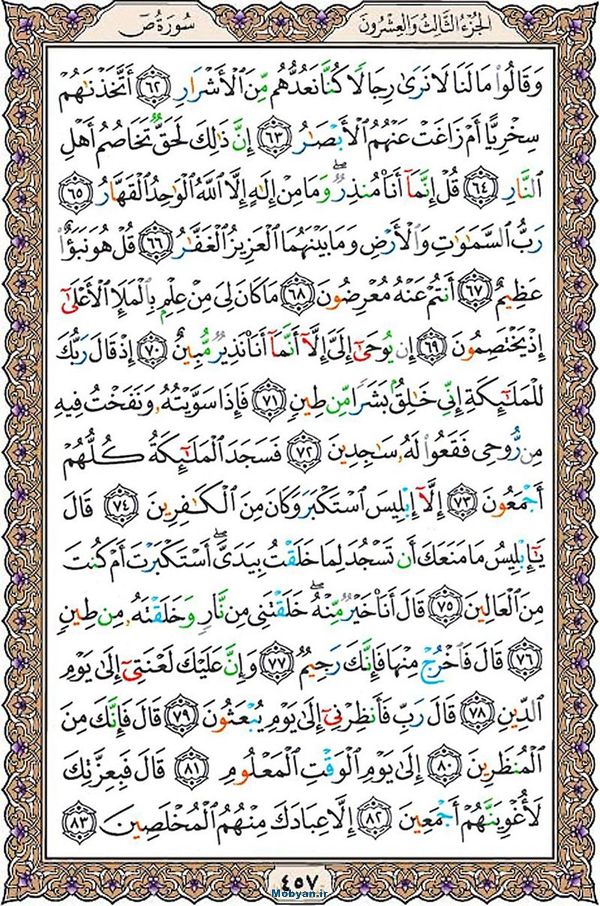 الجزء الثالث والعشرون سورة ص
وَقَالُوا۟ مَا لَنَا لَا نَرَىٰ رِجَالًا كُنَّا نَعُدُّهُم مِّنَ ٱلْأَشْرَارِ ﴿٦٢﴾ أَتَّخَذْنَٰهُمْ
سِخْرِيًّا أَمْ زَاغَتْ عَنْهُمُ ٱلْأَبْصَٰرُ ﴿٦٣﴾ إِنَّ ذَٰلِكَ لَحَقٌّ تَخَاصُمُ أَهْلِ
ٱلنَّارِ ﴿٦٤﴾ قُلْ إِنَّمَآ أَنَا۠ مُنذِرٌ ۖ وَمَا مِنْ إِلَٰهٍ إِلَّا ٱللَّهُ ٱلْوَٰحِدُ ٱلْقَهَّارُ ﴿٦٥﴾
رَبُّ ٱلسَّمَٰوَٰتِ وَٱلْأَرْضِ وَمَا بَيْنَهُمَا ٱلْعَزِيزُ ٱلْغَفَّٰرُ ﴿٦٦﴾ قُلْ هُوَ نَبَؤٌا۟
عَظِيمٌ ﴿٦٧﴾ أَنتُمْ عَنْهُ مُعْرِضُونَ ﴿٦٨﴾ مَا كَانَ لِىَ مِنْ عِلْمٍۭ بِٱلْمَلَإِ ٱلْأَعْلَىٰٓ
إِذْ يَخْتَصِمُونَ ﴿٦٩﴾ إِن يُوحَىٰٓ إِلَىَّ إِلَّآ أَنَّمَآ أَنَا۠ نَذِيرٌ مُّبِينٌ ﴿٧٠﴾ إِذْ قَالَ رَبُّكَ
لِلْمَلَٰٓئِكَةِ إِنِّى خَٰلِقٌۢ بَشَرًا مِّن طِينٍ ﴿٧١﴾ فَإِذَا سَوَّيْتُهُۥ وَنَفَخْتُ فِيهِ
مِن رُّوحِى فَقَعُوا۟ لَهُۥ سَٰجِدِينَ ﴿٧٢﴾ فَسَجَدَ ٱلْمَلَٰٓئِكَةُ كُلُّهُمْ
أَجْمَعُونَ ﴿٧٣﴾ إِلَّآ إِبْلِيسَ ٱسْتَكْبَرَ وَكَانَ مِنَ ٱلْكَٰفِرِينَ ﴿٧٤﴾ قَالَ
يَٰٓإِبْلِيسُ مَا مَنَعَكَ أَن تَسْجُدَ لِمَا خَلَقْتُ بِيَدَىَّ ۖ أَسْتَكْبَرْتَ أَمْ كُنتَ
مِنَ ٱلْعَالِينَ ﴿٧٥﴾ قَالَ أَنَا۠ خَيْرٌ مِّنْهُ ۖ خَلَقْتَنِى مِن نَّارٍ وَخَلَقْتَهُۥ مِن طِينٍ
﴿٧٦﴾ قَالَ فَٱخْرُجْ مِنْهَا فَإِنَّكَ رَجِيمٌ ﴿٧٧﴾ وَإِنَّ عَلَيْكَ لَعْنَتِىٓ إِلَىٰ يَوْمِ
ٱلدِّينِ ﴿٧٨﴾ قَالَ رَبِّ فَأَنظِرْنِىٓ إِلَىٰ يَوْمِ يُبْعَثُونَ ﴿٧٩﴾ قَالَ فَإِنَّكَ مِنَ
ٱلْمُنظَرِينَ ﴿٨٠﴾ إِلَىٰ يَوْمِ ٱلْوَقْتِ ٱلْمَعْلُومِ ﴿٨١﴾ قَالَ فَبِعِزَّتِكَ
لَأُغْوِيَنَّهُمْ أَجْمَعِينَ ﴿٨٢﴾ إِلَّا عِبَادَكَ مِنْهُمُ ٱلْمُخْلَصِينَ ﴿٨٣﴾
٤٥٧
Mobyan.ir